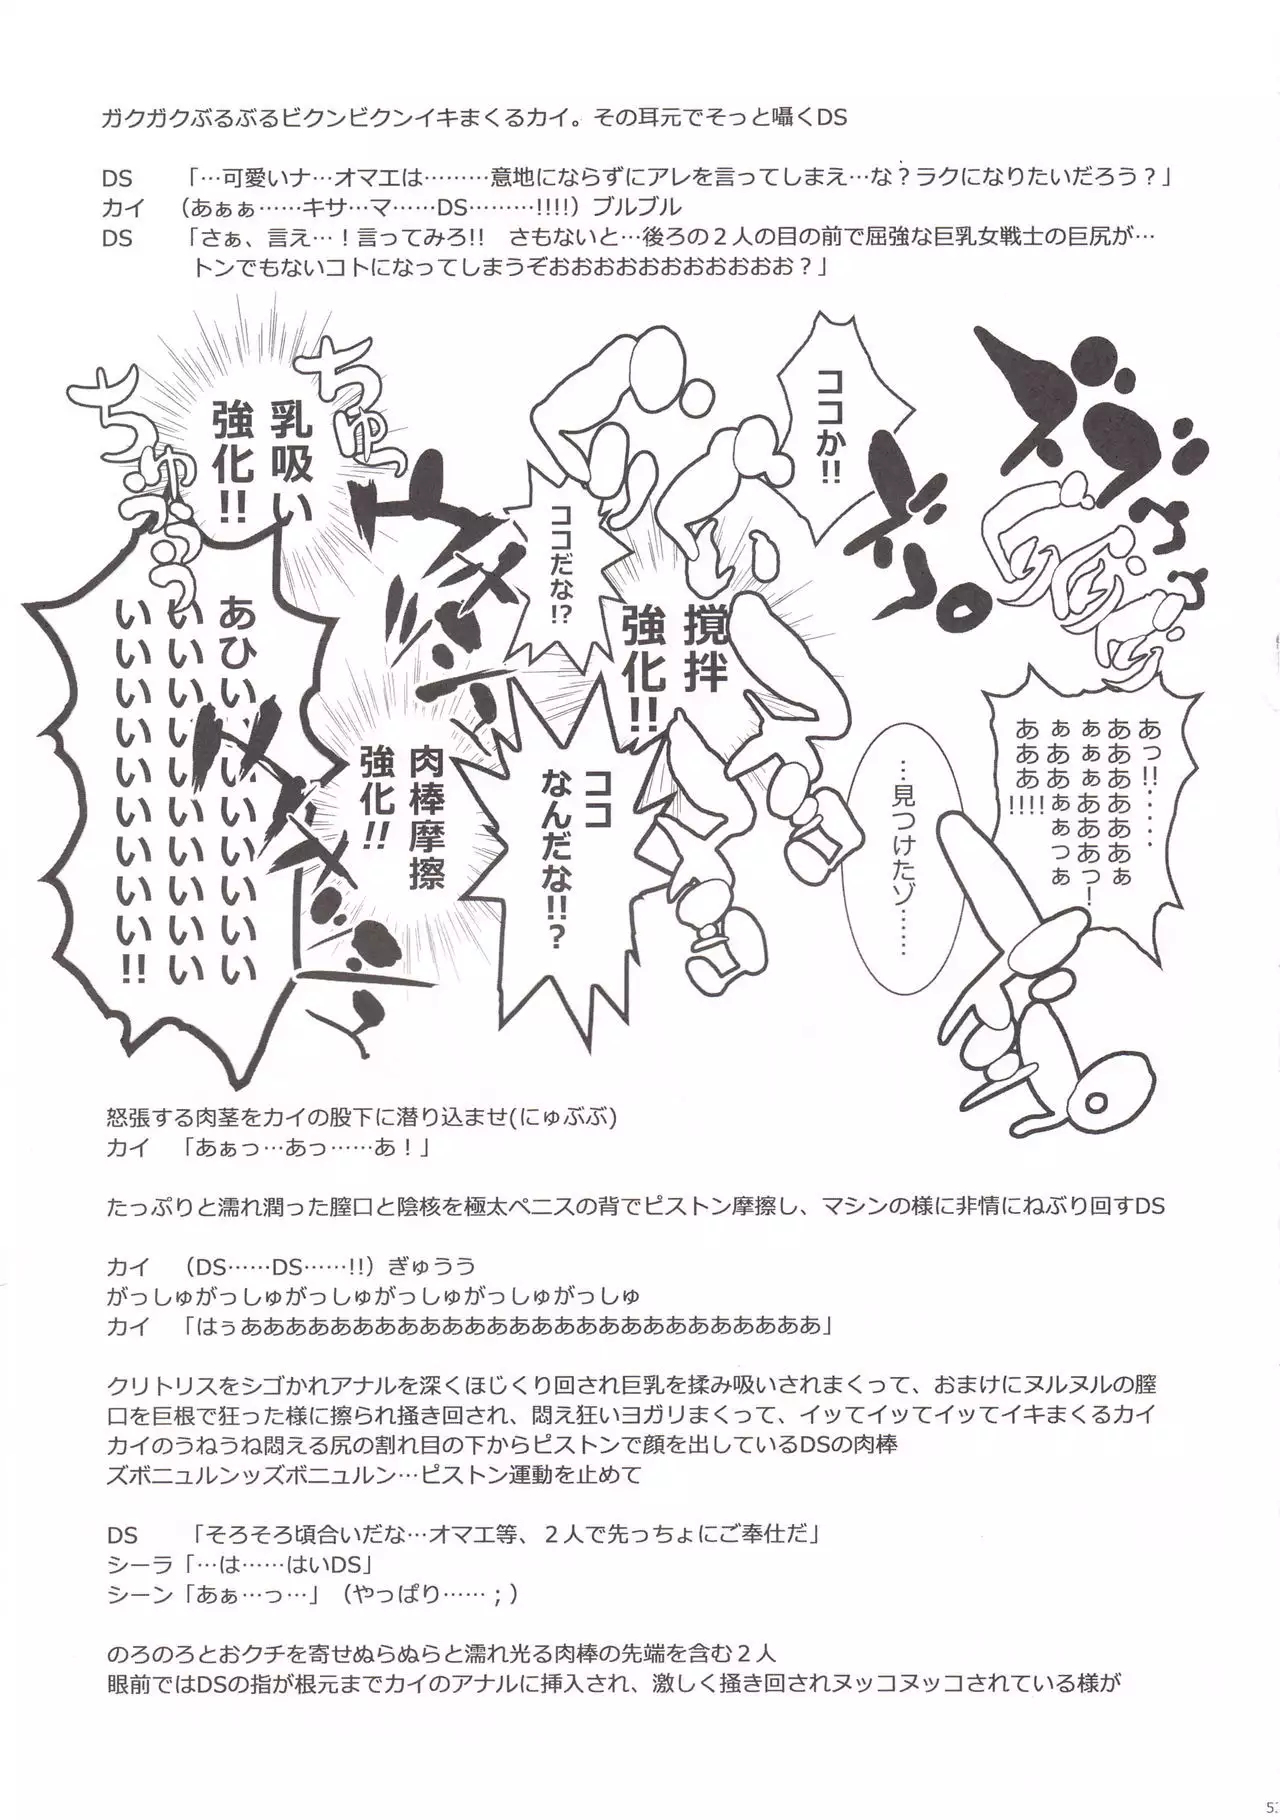 ガクガクぶるぶるビクンビクンイキまくるカイ。その耳元でそっと囁くDS
DS 「…可愛いナ…オマエは………意地にならずにアレを言ってしまえ…な？ラクになりたいだろう？」
カイ （あぁぁ……キサ…マ……DS………!!!!）ブルブル
DS 「さぁ、言え…！言ってみろ!! さもないと…後ろの２人の目の前で屈強な巨乳女戦士の巨尻が…
トンでもないコトになってしまうぞおおおおおおおおおおお？」
ココか!!
あっ!!……
ああああああぁ
ぁぁぁぁあああっ！
ぁああぁぁっぁ
あああ!!!!
…見つけたゾ……
ココだな!?
攪拌
強化!!
ココ
なんだな!!?
乳吸い
強化!!
ちゅっ
ちゅうぅぅ
肉棒摩擦
強化!!
怒張する肉茎をカイの股下に潜り込ませ(にゅぶぶ)
カイ 「あぁっ…あっ……あ！」
たっぷりと濡れ潤った膣口と陰核を極太ペニスの背でピストン摩擦し、マシンの様に非情にねぶり回すDS
カイ （DS……DS……!!）ぎゅうう
がっしゅがっしゅがっしゅがっしゅがっしゅがっしゅ
カイ 「はぅああああああああああああああああああああああああああ」
クリトリスをシゴかれアナルを深くほじくり回され巨乳を揉み吸いされまくって、おまけにヌルヌルの膣
口を巨根で狂った様に擦られ掻き回され、悶え狂いヨガリまくって、イッてイッてイッてイキまくるカイ
カイのうねうね悶える尻の割れ目の下からピストンで顔を出しているDSの肉棒
ズボニュルンッズボニュルン…ピストン運動を止めて
DS 「そろそろ頃合いだな…オマエ等、２人で先っちょにご奉仕だ」
シーラ「…は……はいDS」
シーン「あぁ…っ…」（やっぱり……；）
のろのろとおクチを寄せぬらぬらと濡れ光る肉棒の先端を含む２人
眼前ではDSの指が根元までカイのアナルに挿入され、激しく掻き回されヌッコヌッコされている様が